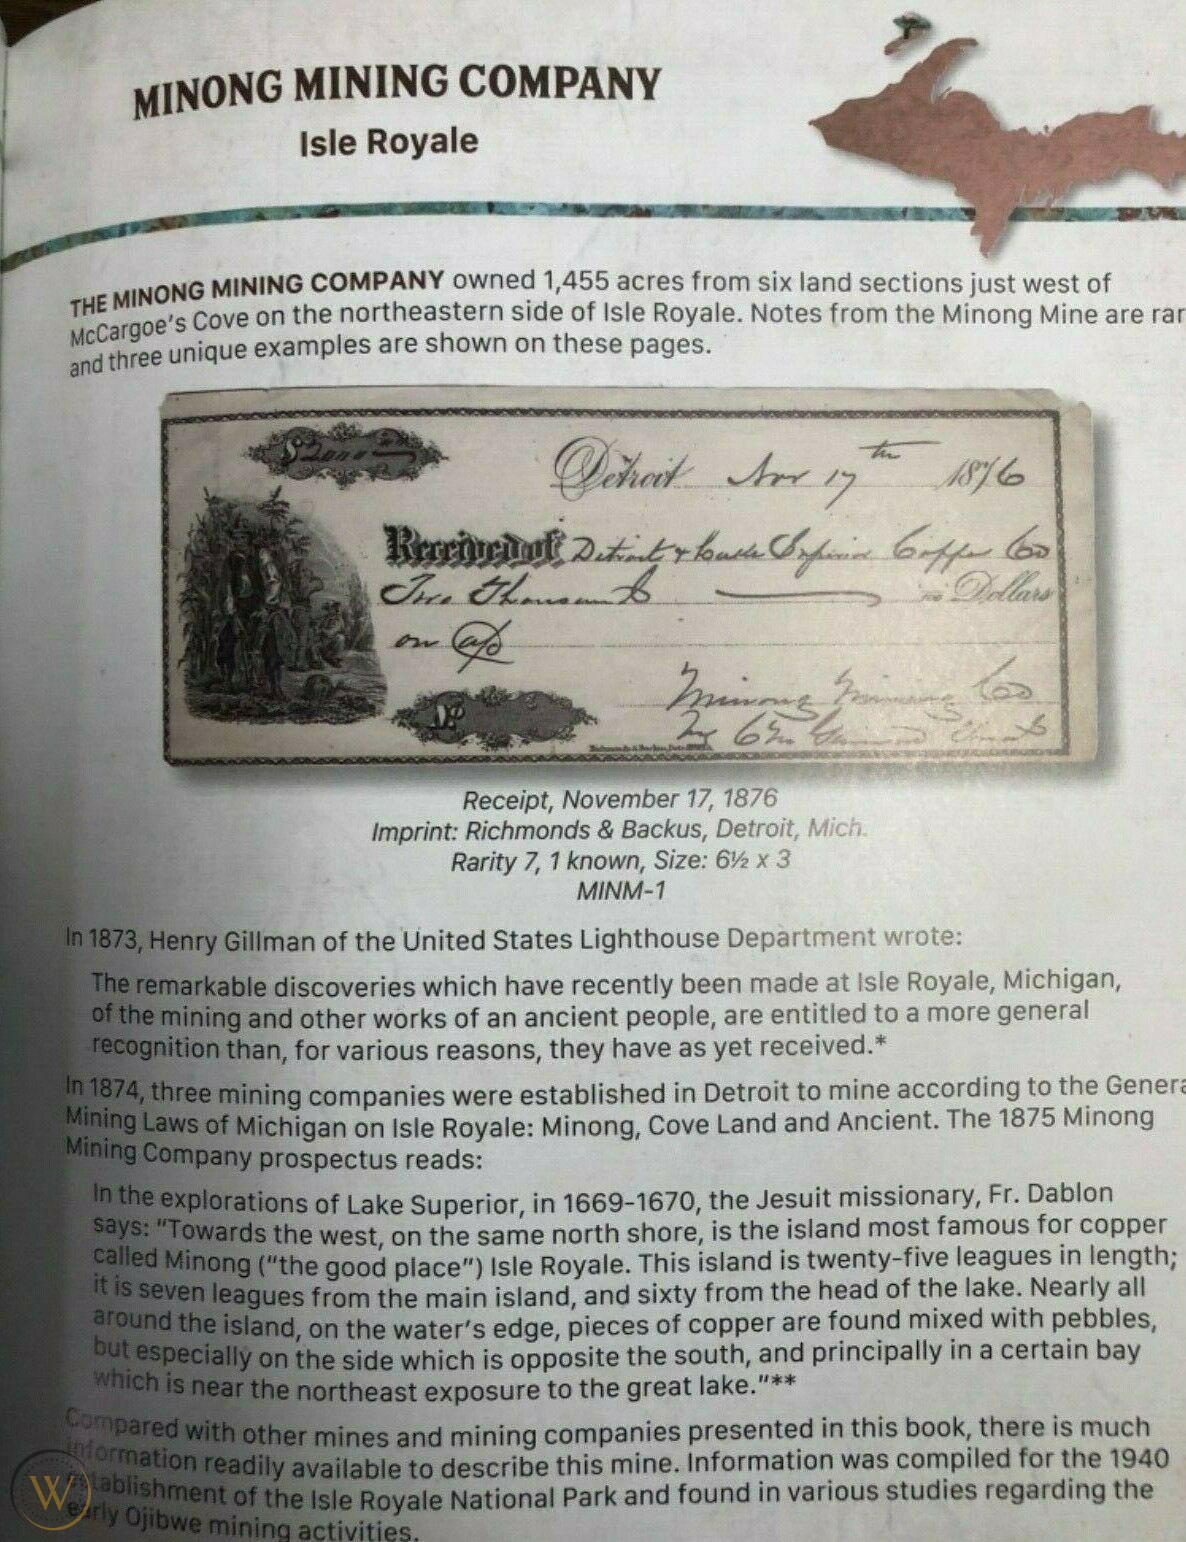 MINONG MINING COMPANY
Isle Royale
THE MINONG MINING COMPANY owned 1,455 acres from six land sections just west of
McCargoe's Cove on the northeastern side of Isle Royale. Notes from the Minong Mine are rar
and three unique examples are shown on these pages.
$2000
Detroit Nov 17th 1876
Received of Detroit & Lake Superior Copper Co
Two Thousand Dollars
on a/c
Minong Mining Co
No
Receipt, November 17, 1876
Imprint: Richmonds & Backus, Detroit, Mich.
Rarity 7, 1 known, Size: 6½ x 3
MINM-1
In 1873, Henry Gillman of the United States Lighthouse Department wrote:
The remarkable discoveries which have recently been made at Isle Royale, Michigan,
of the mining and other works of an ancient people, are entitled to a more general
recognition than, for various reasons, they have as yet received.*
In 1874, three mining companies were established in Detroit to mine according to the Genera
Mining Laws of Michigan on Isle Royale: Minong, Cove Land and Ancient. The 1875 Minong
Mining Company prospectus reads:
In the explorations of Lake Superior, in 1669-1670, the Jesuit missionary, Fr. Dablon
says: "Towards the west, on the same north shore, is the island most famous for copper
called Minong ("the good place") Isle Royale. This island is twenty-five leagues in length;
it is seven leagues from the main island, and sixty from the head of the lake. Nearly all
around the island, on the water's edge, pieces of copper are found mixed with pebbles,
but especially on the side which is opposite the south, and principally in a certain bay
which is near the northeast exposure to the great lake."**
Compared with other mines and mining companies presented in this book, there is much
information readily available to describe this mine. Information was compiled for the 1940
establishment of the Isle Royale National Park and found in various studies regarding the
early Ojibwe mining activities.
W